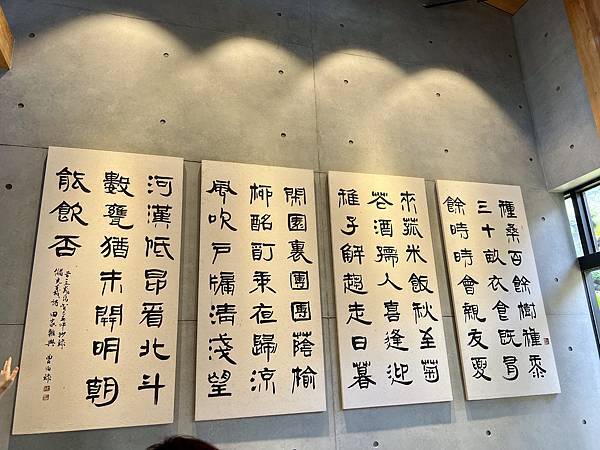 種桑百餘樹種黍
三十畝衣食既有
餘時時會親友夏
來菰米飯秋至菊
花酒孺人喜逢迎
稚子解趨走日暮
閑園裏團團蔭榆
柳酩酊乘夜歸涼
風吹戶牖清淺望
河漢低昂看北斗
數甕猶未開明朝
能飲否
儲光羲詩田家雜興